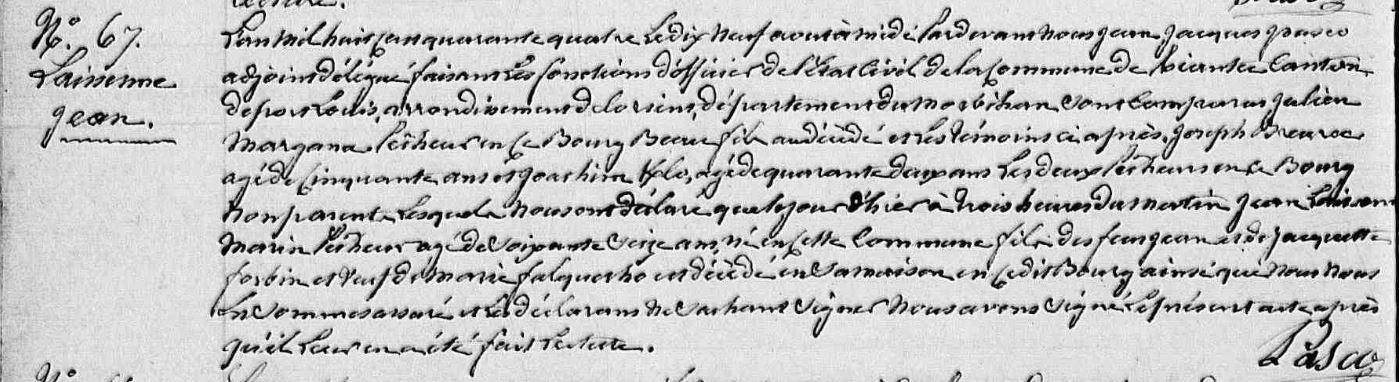 lecture.
N.º 67.
Laisenne
Jean.
L'an mil huit cent quarante quatre Le dix Neuf aout à midi Pardevant nous Jean Jacques Pasco
adjoint délégué faisant Les fonctions d'officier de l'Etat Civil de la Commune de Riantec Canton
de port Louis, arrondissement de lorient, département du morbihan Sont Comparus Julien
Margana Pêcheur en ce Bourg Beau fils au décédé et Les témoins ci après, Joseph
agé de Cinquante ans et Joachim agé de quarante deux ans Les deux Pêcheurs en ce Bourg
Non parents Lesquels Nous ont déclaré que le jour d'hier à trois heures du matin Jean
Marin Pêcheur agé de Soixante Seize ans, né en Cette Commune fils des feus Jean et de Jacquette
forbin et Veuf de Marie falquerho est décédé en Sa maison en Cedit Bourg ainsi que Nous Nous
En Sommes assuré et Les déclarans Ne Sachant Signer Nous avons Signé Le présent acte après
qu'il Leur en a été fait Lecture.
Pasco
N.º